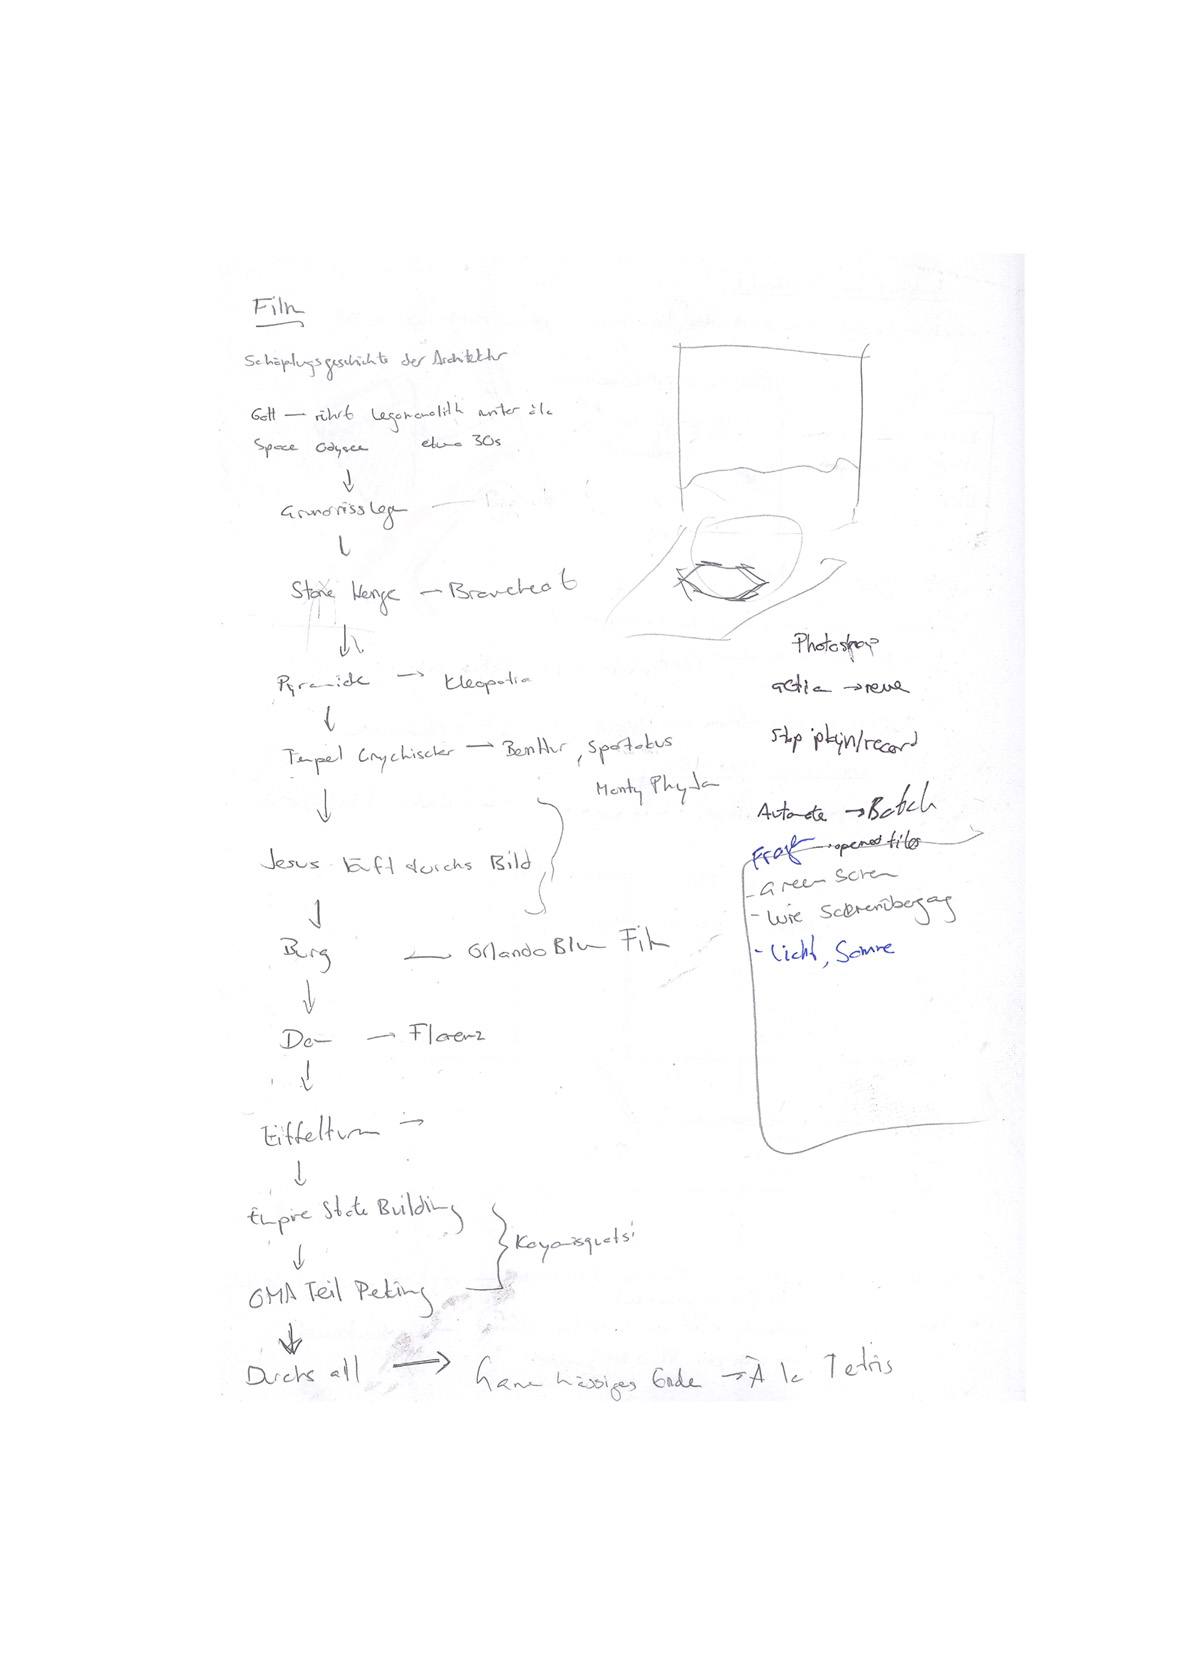 Film
Schöpfungsgeschichte der Architektur
Gott — rührt Legomonolith unter à la
Space Odysee etwa 30s
Grundriss legen
Stone Henge — Braveheart
Pyramide → Kleopatra
Tempel Grychischer — BenHur, Spartakus
Monty Phyton
Jesus läuft durchs Bild
Burg — Orlando Blum Film
Dom — Florenz
Eiffelturm →
Empire State Building
Koyanisquatsi
OMA Teil Peking
Durchs all → Ende → À la Tetris
Photoshop
action →
Stop /record
Automate → Batch
opened files
- Green Screen
- Wie
- Licht, Sonne